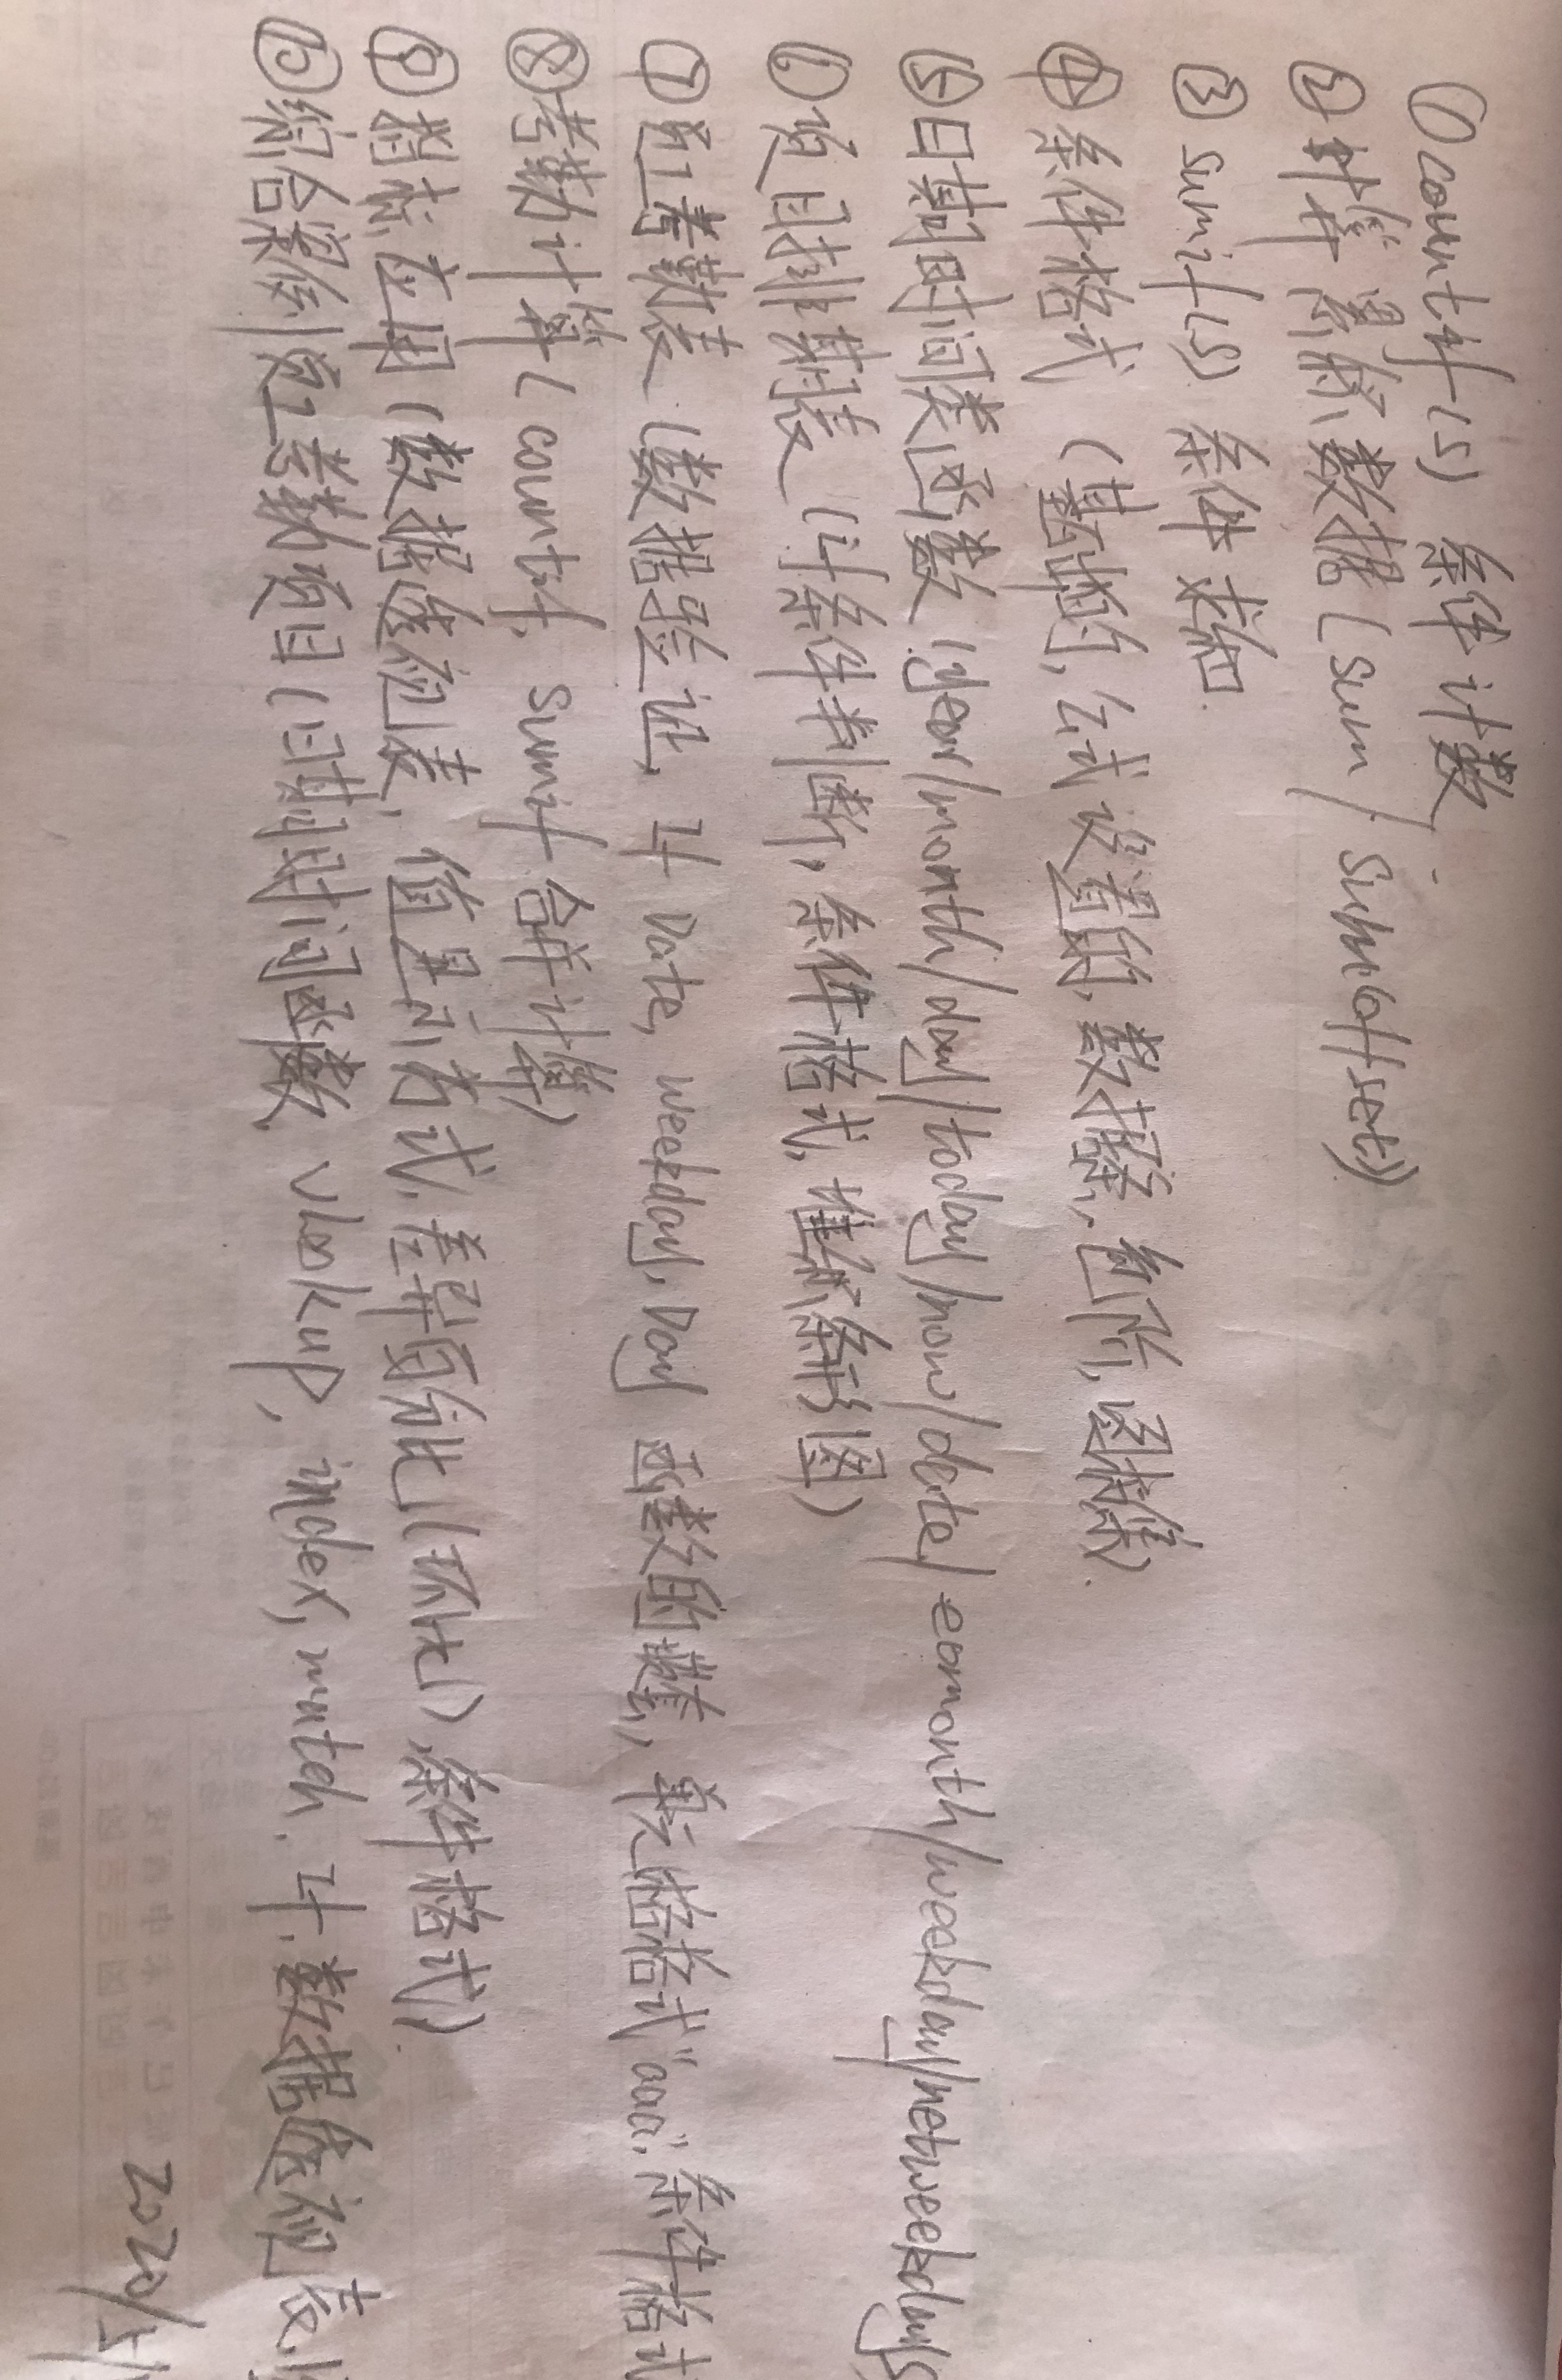 ①countif(s) 条件计数
②计算累积数据(sum/sum(offset))
③sumif(s) 条件求和.
④条件格式 (基础的, 公式设置的, 数据条, 色阶, 图标集).
⑤日期时间类函数 (year/month/day/today/now/date/eomonth/weekday/networkdays
⑥项目排期表 (if条件判断, 条件格式, 堆积条形图)
⑦员工考勤表 (数据验证, if Date, weekday, Day 函数的嵌套, 单元格格式"aaa", 条件格式
⑧考勤计算 (countif, sumif 合并计算)
⑨透视应用 (数据透视表, 值显示方式, 差异百分比(环比), 条件格式)
⑩综合案例 员工考勤项目 (日期时间函数 vlookup, index, match, if, 数据透视表,
2020/5/